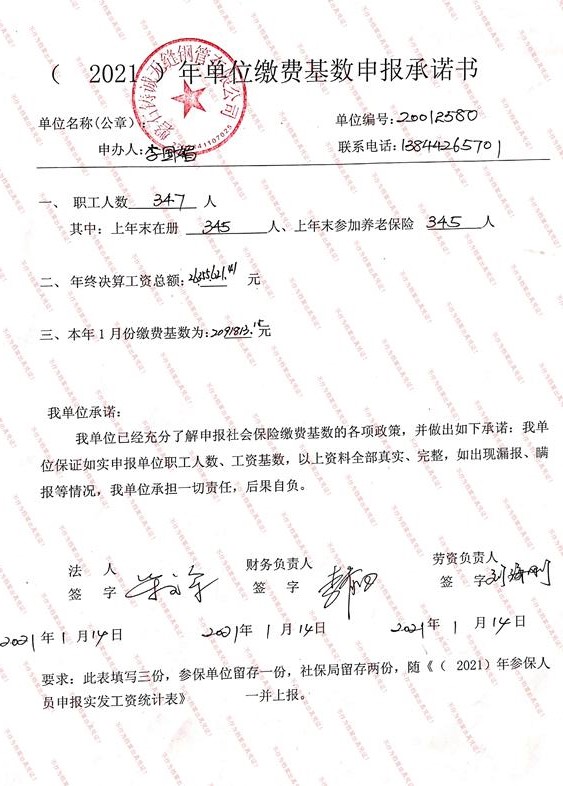 ( 2021 ) 年单位缴费基数申报承诺书
单位名称(公章): 单位编号:20012580
申办人: 联系电话:13844265701
一、 职工人数 347 人
其中: 上年末在册 345 人、上年末参加养老保险 345 人
二、 年终决算工资总额: 元
三、本年1月份缴费基数为:2091813.15元
我单位承诺:
我单位已经充分了解申报社会保险缴费基数的各项政策, 并做出如下承诺: 我单
位保证如实申报单位职工人数、工资基数, 以上资料全部真实、完整, 如出现漏报、瞒
报等情况, 我单位承担一切责任, 后果自负。
法 人 财务负责人 劳资负责人
签 字 签 字 签 字
2021年1月14日 2021年1月14日 2021年1月14日
要求: 此表填写三份, 参保单位留存一份, 社保局留存两份, 随《( 2021)年参保人
员申报实发工资统计表》 一并上报。